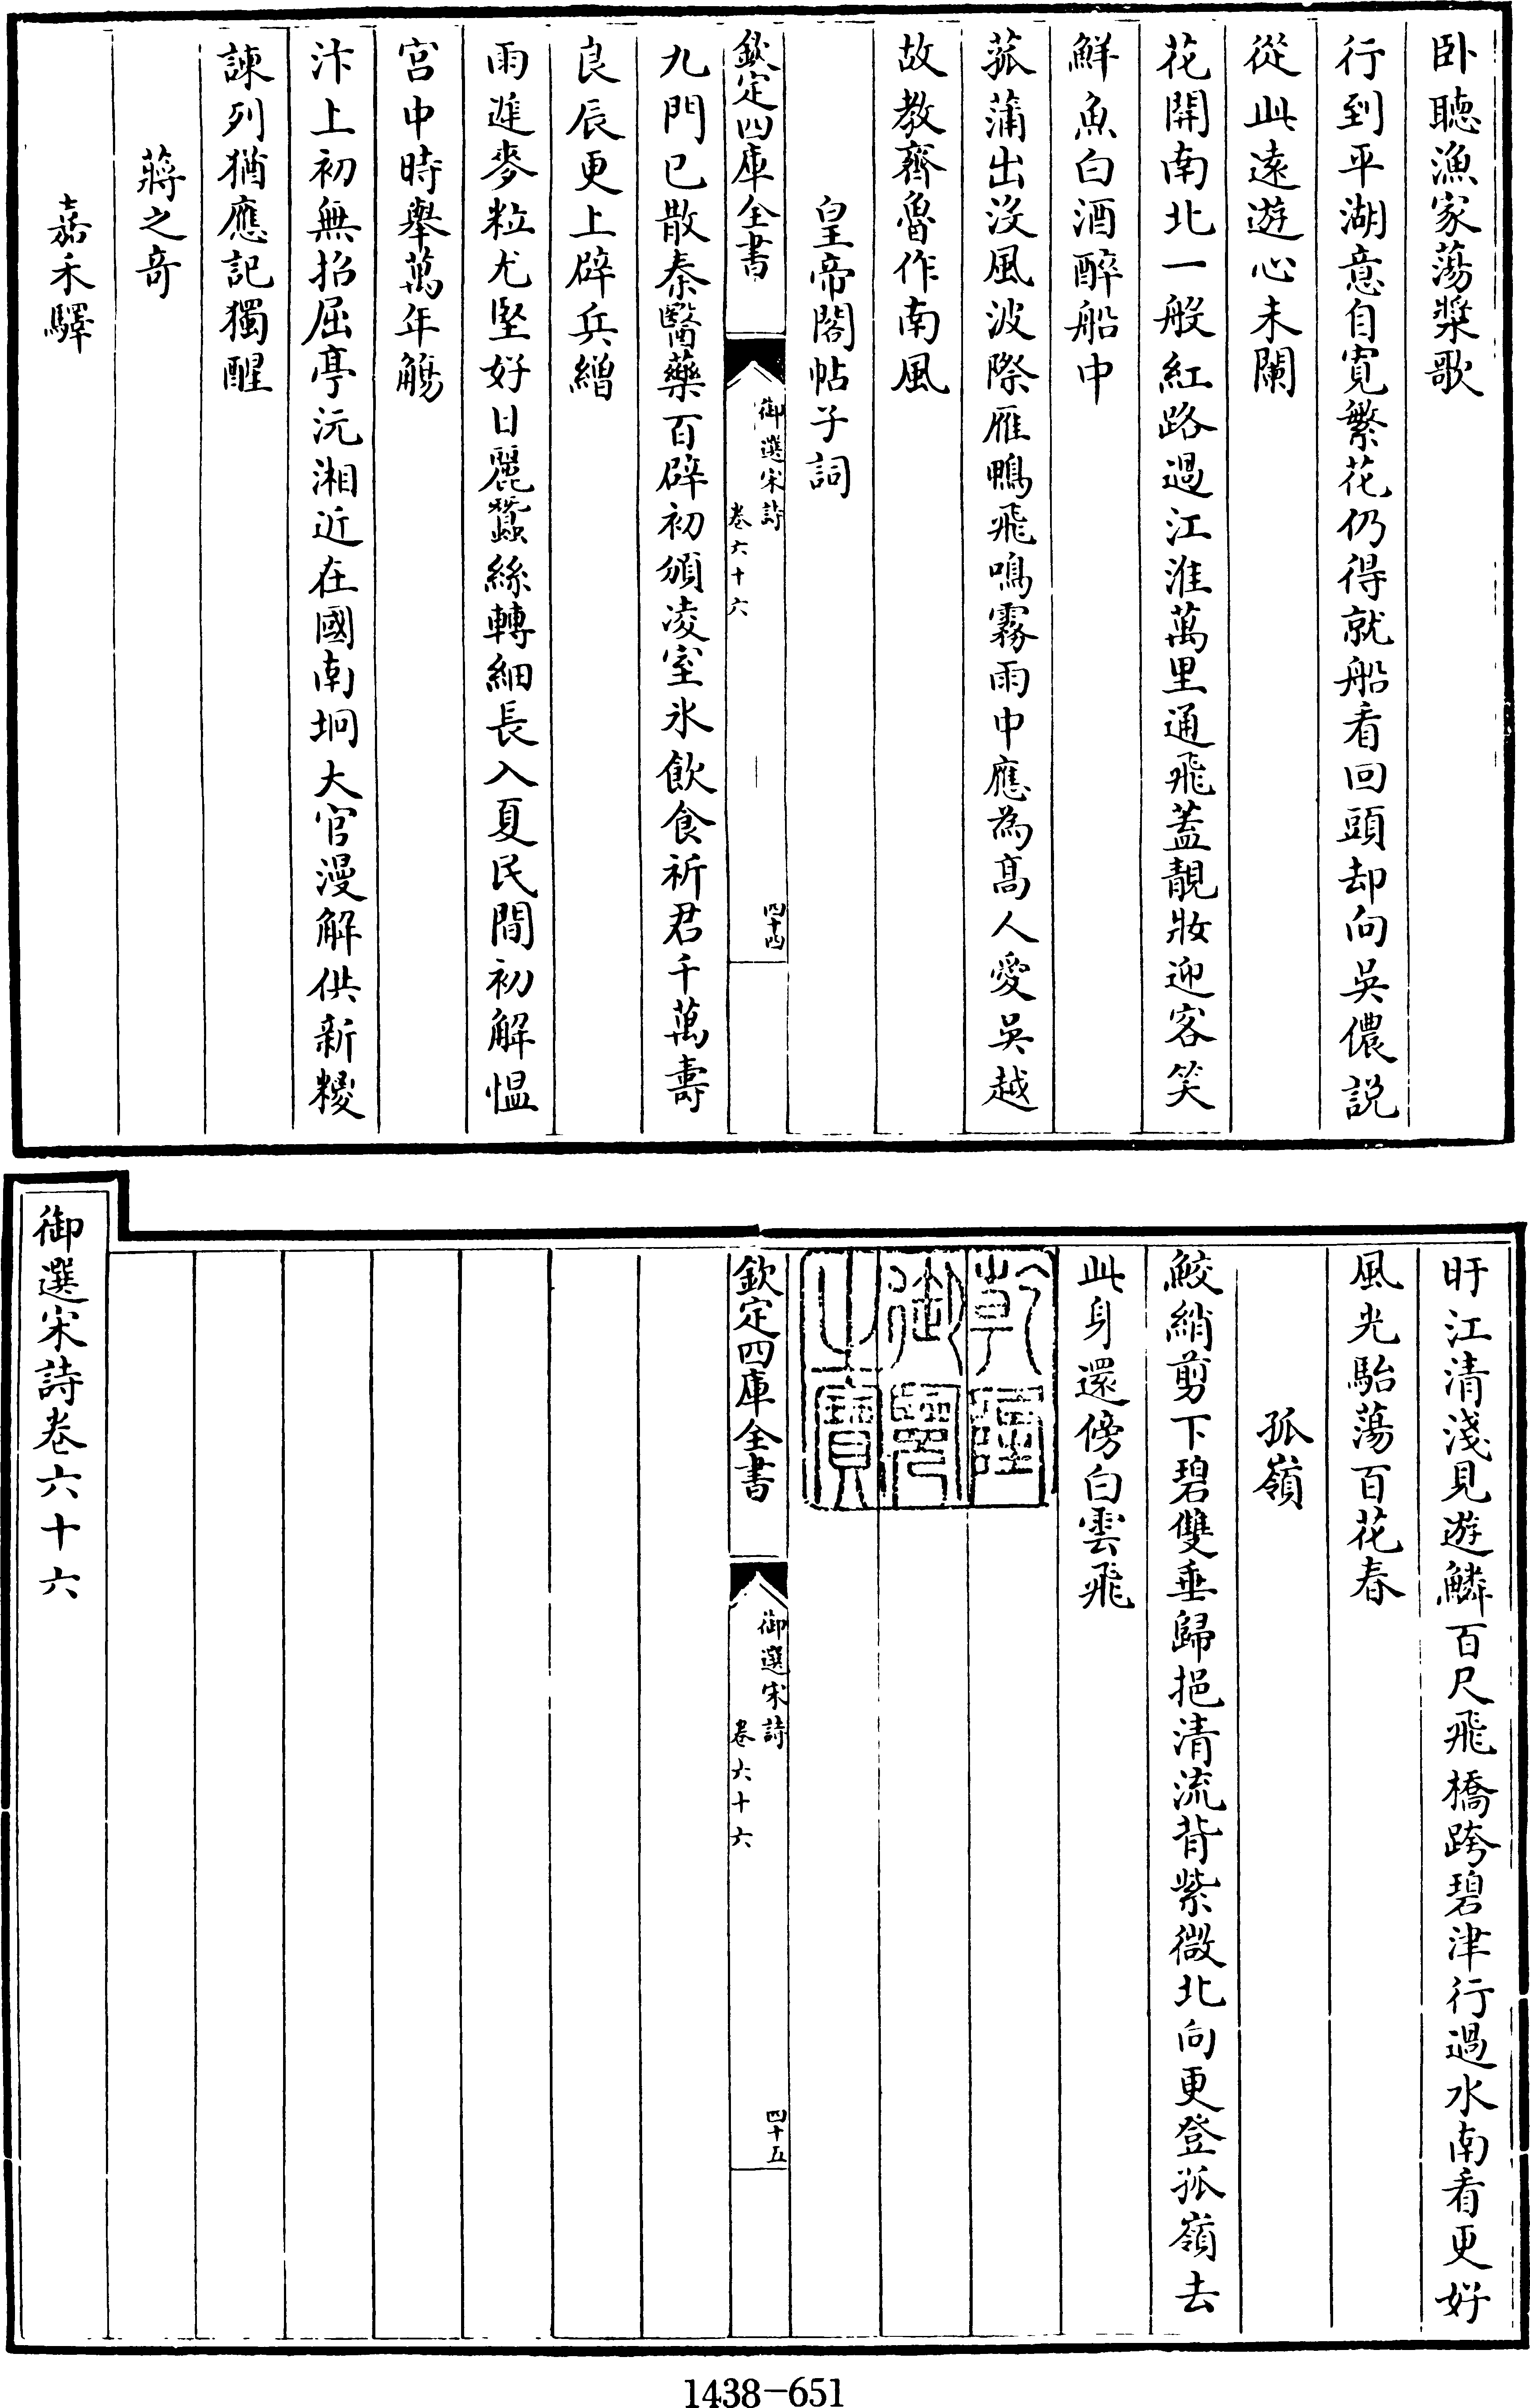 卧聽漁家蕩槳歌
行到平湖意自寛繁花仍得就船看回頭却向吳儂説
從此遠遊心未闌
花開南北一般紅路過江淮萬里通飛蓋靚妝迎客笑
鮮魚白酒醉船中
菰蒲出没風波際雁鴨飛鳴霧雨中應為髙人愛吳越
故教齊魯作南風
皇帝閣帖子詞
欽定四庫全書
御選宋詩
卷六十六
四十四
九門已散秦醫藥百辟初頒凌室氷飲食祈君千萬壽
良辰更上辟兵繒
雨進麥粒尤堅好日麗蠶絲轉細長入夏民間初解愠
宮中時舉萬年觴
汴上初無招屈亭沅湘近在國南坰大官漫解供新糭
諫列猶應記獨醒
蔣之竒
嘉禾驛
盱江清淺見遊鱗百尺飛橋跨碧津行過水南看更好
風光駘蕩百花春
孤嶺
鮫綃剪下碧雙垂歸挹清流背紫微北向更登孤嶺去
此身還傍白雲飛
乾隆
御覽
之寶
欽定四庫全書
御選宋詩
卷六十六
四十五
御選宋詩卷六十六
1438-651